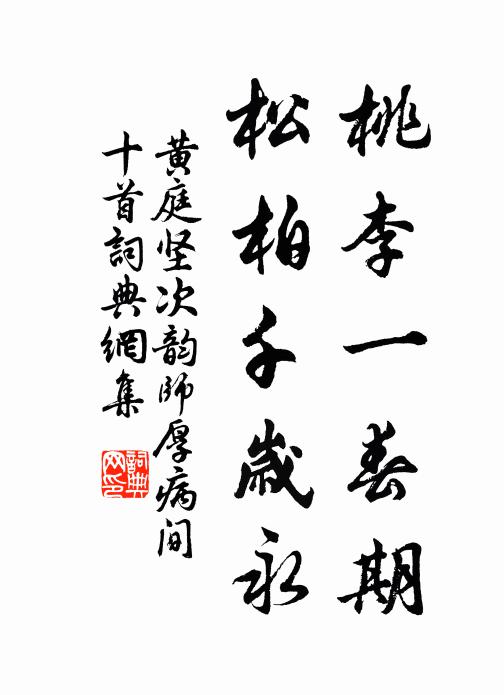 桃李一春期
松柏千歲永
黄庭坚次韵師厚病间
十首詞典網集
詞典
网印